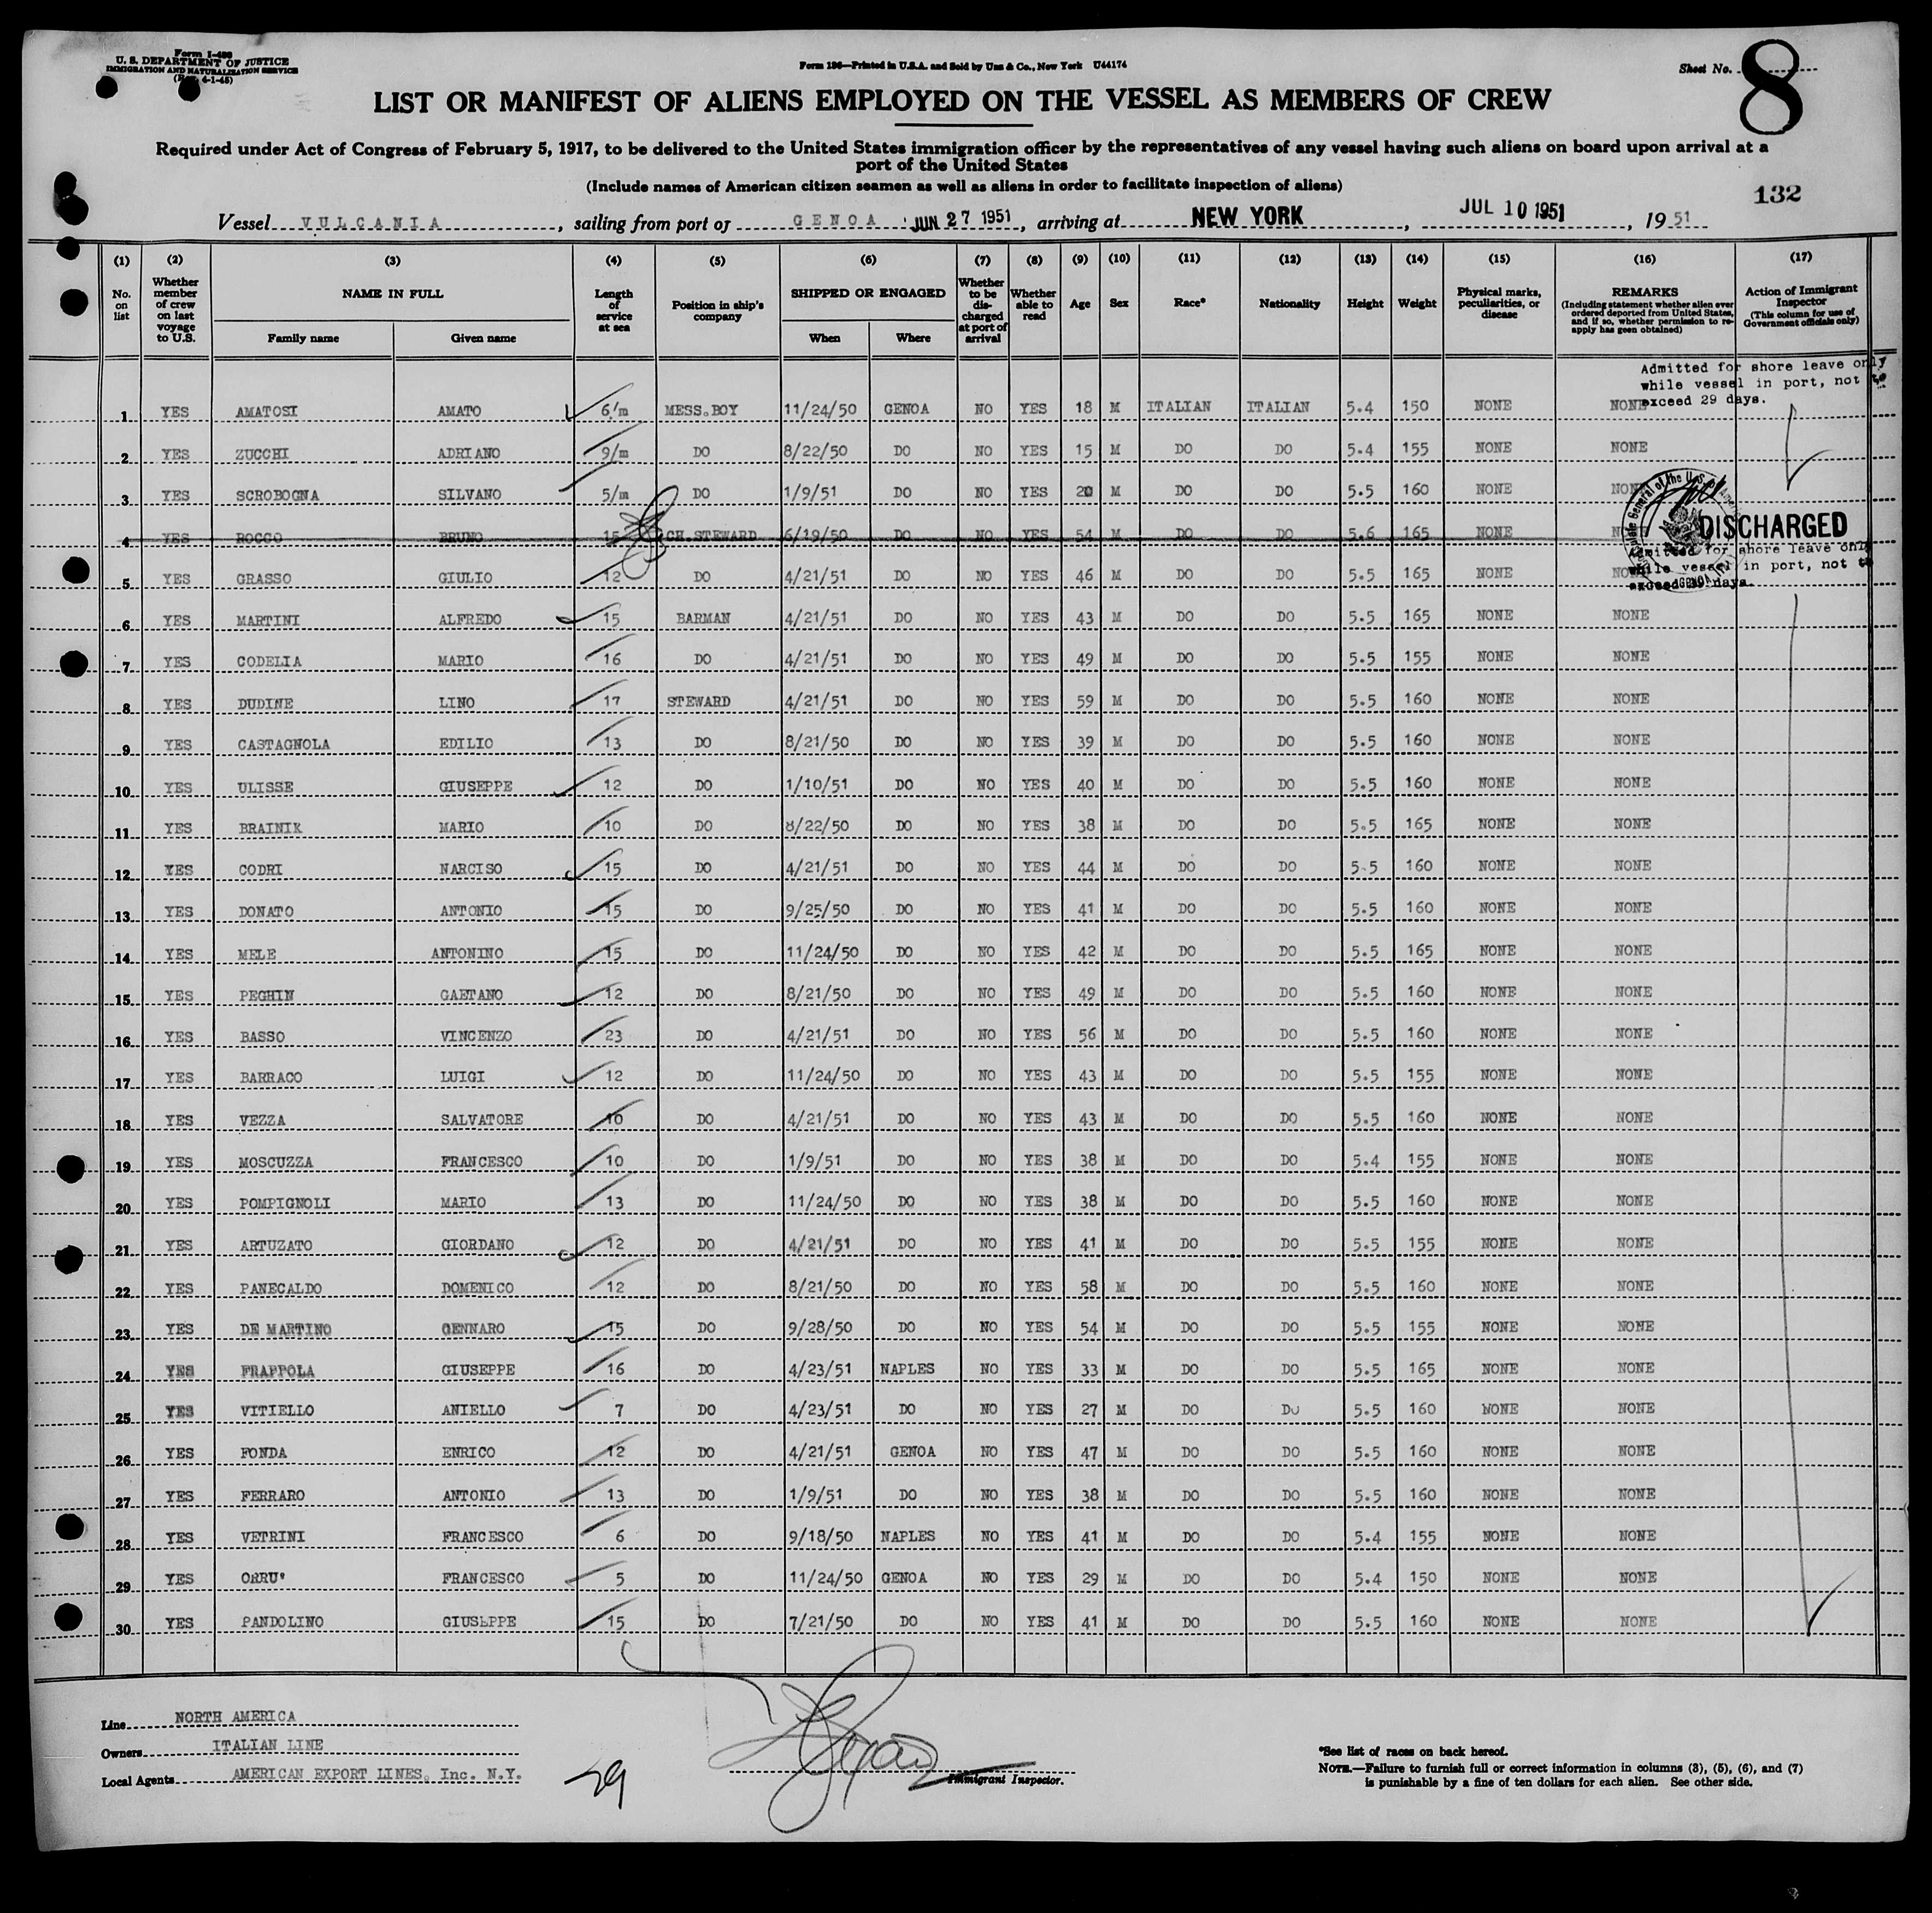 Form I-480
U. S. DEPARTMENT OF JUSTICE
IMMIGRATION AND NATURALIZATION SERVICE
(Rev. 4-1-45)
Form 186—Printed in U.S.A. and Sold by Unz & Co., New York U44174
Sheet No. 8
LIST OR MANIFEST OF ALIENS EMPLOYED ON THE VESSEL AS MEMBERS OF CREW
Required under Act of Congress of February 5, 1917, to be delivered to the United States immigration officer by the representatives of any vessel having such aliens on board upon arrival at a
port of the United States
(Include names of American citizen seamen as well as aliens in order to facilitate inspection of aliens)
132
Vessel VULCANIA, sailing from port of GENOA JUN 27 1951, arriving at NEW YORK, JUL 10 1951, 1951
(1) (2) (3) (4) (5) (6) (7) (8) (9) (10) (11) (12) (13) (14) (15) (16) (17)
No. on list
Whether member of crew on last voyage to U.S.
NAME IN FULL
Family name Given name
Length of service at sea
Position in ship's company
SHIPPED OR ENGAGED
When Where
Whether to be discharged at port of arrival
Whether able to read
Age
Sex
Race*
Nationality
Height
Weight
Physical marks, peculiarities, or disease
REMARKS
(Including statement whether alien ever ordered deported from United States, and if so, whether permission to reapply has been obtained)
Action of Immigrant Inspector
(This column for use of Government officials only)
Admitted for shore leave only
while vessel in port, not to
exceed 29 days.
1 YES AMATOSI AMATO 6/m MESS.BOY 11/24/50 GENOA NO YES 18 M ITALIAN ITALIAN 5.4 150 NONE NONE
2 YES ZUCCHI ADRIANO 9/m DO 8/22/50 DO NO YES 15 M DO DO 5.4 155 NONE NONE
3 YES SCROBOGNA SILVANO 5/m DO 1/9/51 DO NO YES 20 M DO DO 5.5 160 NONE NONE
4 YES ROCCO BRUNO 15 CH.STEWARD 6/19/50 DO NO YES 54 M DO DO 5.6 165 NONE NONE DISCHARGED
Admitted for shore leave only
while vessel in port, not to
exceed 29 days.
5 YES GRASSO GIULIO 12 DO 4/21/51 DO NO YES 46 M DO DO 5.5 165 NONE NONE
6 YES MARTINI ALFREDO 15 BARMAN 4/21/51 DO NO YES 43 M DO DO 5.5 165 NONE NONE
7 YES CODELIA MARIO 16 DO 4/21/51 DO NO YES 49 M DO DO 5.5 155 NONE NONE
8 YES DUDINE LINO 17 STEWARD 4/21/51 DO NO YES 59 M DO DO 5.5 160 NONE NONE
9 YES CASTAGNOLA EDILIO 13 DO 8/21/50 DO NO YES 39 M DO DO 5.5 160 NONE NONE
10 YES ULISSE GIUSEPPE 12 DO 1/10/51 DO NO YES 40 M DO DO 5.5 160 NONE NONE
11 YES BRAINIK MARIO 10 DO 8/22/50 DO NO YES 38 M DO DO 5.5 165 NONE NONE
12 YES CODRI NARCISO 15 DO 4/21/51 DO NO YES 44 M DO DO 5.5 160 NONE NONE
13 YES DONATO ANTONIO 15 DO 9/25/50 DO NO YES 41 M DO DO 5.5 160 NONE NONE
14 YES MELE ANTONINO 15 DO 11/24/50 DO NO YES 42 M DO DO 5.5 165 NONE NONE
15 YES PEGHIN GAETANO 12 DO 8/21/50 DO NO YES 49 M DO DO 5.5 160 NONE NONE
16 YES BASSO VINCENZO 23 DO 4/21/51 DO NO YES 56 M DO DO 5.5 160 NONE NONE
17 YES BARRACO LUIGI 12 DO 11/24/50 DO NO YES 43 M DO DO 5.5 155 NONE NONE
18 YES VEZZA SALVATORE 10 DO 4/21/51 DO NO YES 43 M DO DO 5.5 160 NONE NONE
19 YES MOSCUZZA FRANCESCO 10 DO 1/9/51 DO NO YES 38 M DO DO 5.4 155 NONE NONE
20 YES POMPIGNOLI MARIO 13 DO 11/24/50 DO NO YES 38 M DO DO 5.5 160 NONE NONE
21 YES ARTUZATO GIORDANO 12 DO 4/21/51 DO NO YES 41 M DO DO 5.5 155 NONE NONE
22 YES PANECALDO DOMENICO 12 DO 8/21/50 DO NO YES 58 M DO DO 5.5 160 NONE NONE
23 YES DE MARTINO GENNARO 15 DO 9/28/50 DO NO YES 54 M DO DO 5.5 155 NONE NONE
24 YES FRAPPOLA GIUSEPPE 16 DO 4/23/51 NAPLES NO YES 33 M DO DO 5.5 165 NONE NONE
25 YES VITIELLO ANIELLO 7 DO 4/23/51 DO NO YES 27 M DO DO 5.5 160 NONE NONE
26 YES FONDA ENRICO 12 DO 4/21/51 GENOA NO YES 47 M DO DO 5.5 160 NONE NONE
27 YES FERRARO ANTONIO 13 DO 1/9/51 DO NO YES 38 M DO DO 5.5 160 NONE NONE
28 YES VETRINI FRANCESCO 6 DO 9/18/50 NAPLES NO YES 41 M DO DO 5.4 155 NONE NONE
29 YES ORRU' FRANCESCO 5 DO 11/24/50 GENOA NO YES 29 M DO DO 5.4 150 NONE NONE
30 YES PANDOLINO GIUSEPPE 15 DO 7/21/50 DO NO YES 41 M DO DO 5.5 160 NONE NONE
Line NORTH AMERICA
Owners ITALIAN LINE
Local Agents AMERICAN EXPORT LINES. Inc. N.Y.
29
Immigrant Inspector.
*See list of races on back hereof.
NOTE.—Failure to furnish full or correct information in columns (3), (5), (6), and (7)
is punishable by a fine of ten dollars for each alien. See other side.